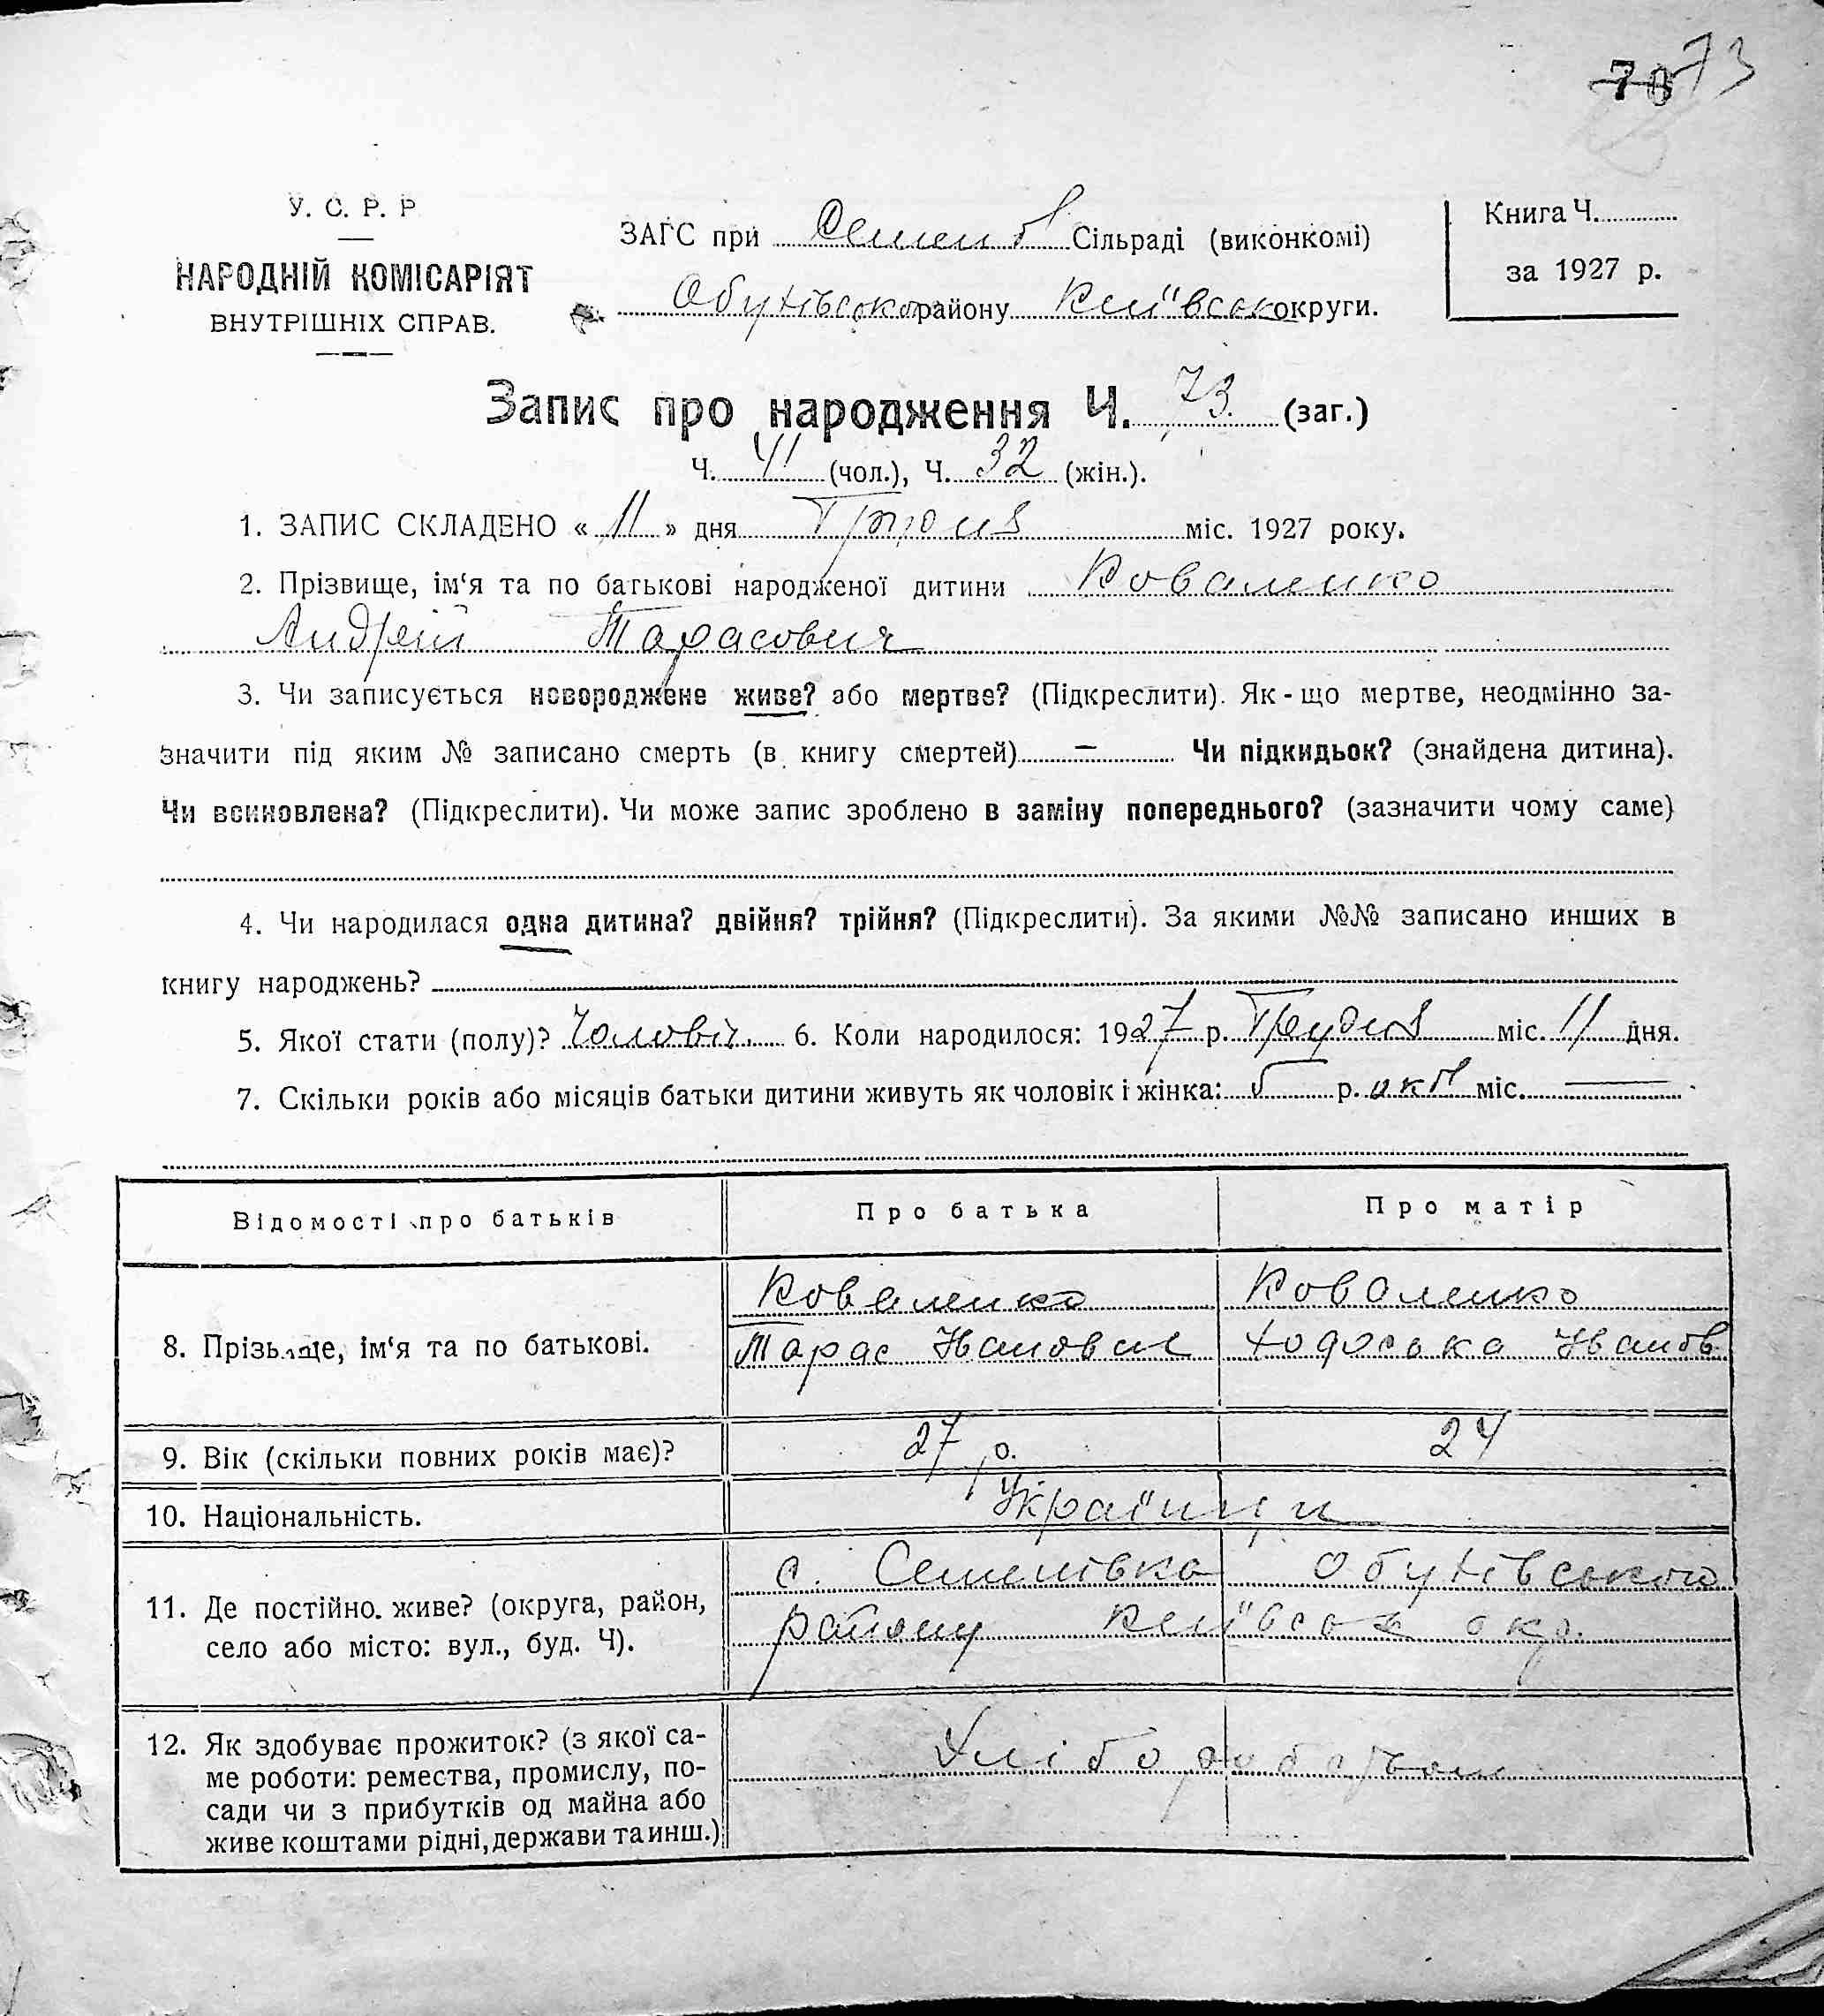 73
У. С. Р. Р
НАРОДНІЙ КОМІСАРІЯТ
ВНУТРІШНІХ СПРАВ.
ЗАГС при Семенів Сільраді (виконкомі)
Обухівського району Київськ округи.
Книга Ч.
за 1927 р.
Запис про народження Ч. 73. (заг.)
Ч. 41 (чол.), Ч. 32 (жін.).
1. ЗАПИС СКЛАДЕНО « 11 » дня Грудня міс. 1927 року.
2. Прізвище, ім‘я та по батькові народженої дитини Коваленко
Андрій Тарасович
3. Чи записується новороджене живе? або мертве? (Підкреслити). Як-що мертве, неодмінно за-
значити під яким № записано смерть (в книгу смертей) — Чи підкидьок? (знайдена дитина).
Чи всиновлена? (Підкреслити). Чи може запис зроблено в заміну попереднього? (зазначити чому саме)
4. Чи народилася одна дитина? двійня? трійня? (Підкреслити). За якими №№ записано инших в
книгу народжень?
5. Якої стати (полу)? Чоловіч. 6. Коли народилося: 1927 р. Грудня міс. 11 дня.
7. Скільки років або місяців батьки дитини живуть як чоловік і жінка: 5 р. міс. —
Відомості про батьків Про батька Про матір
8. Прізвище, ім‘я та по батькові.
Коваленко Коваленко
Тарас Іванович Ходоська Іванів
9. Вік (скільки повних років має)? 27 р. 24
10. Національність. Українци
11. Де постійно живе? (округа, район,
село або місто: вул., буд. Ч).
с. Семенівка Обухівського
району Київськ окр.
12. Як здобуває прожиток? (з якої са-
ме роботи: ремества, промислу, по-
сади чи з прибутків од майна або
живе коштами рідні, держави та инш.)
Хліборобством